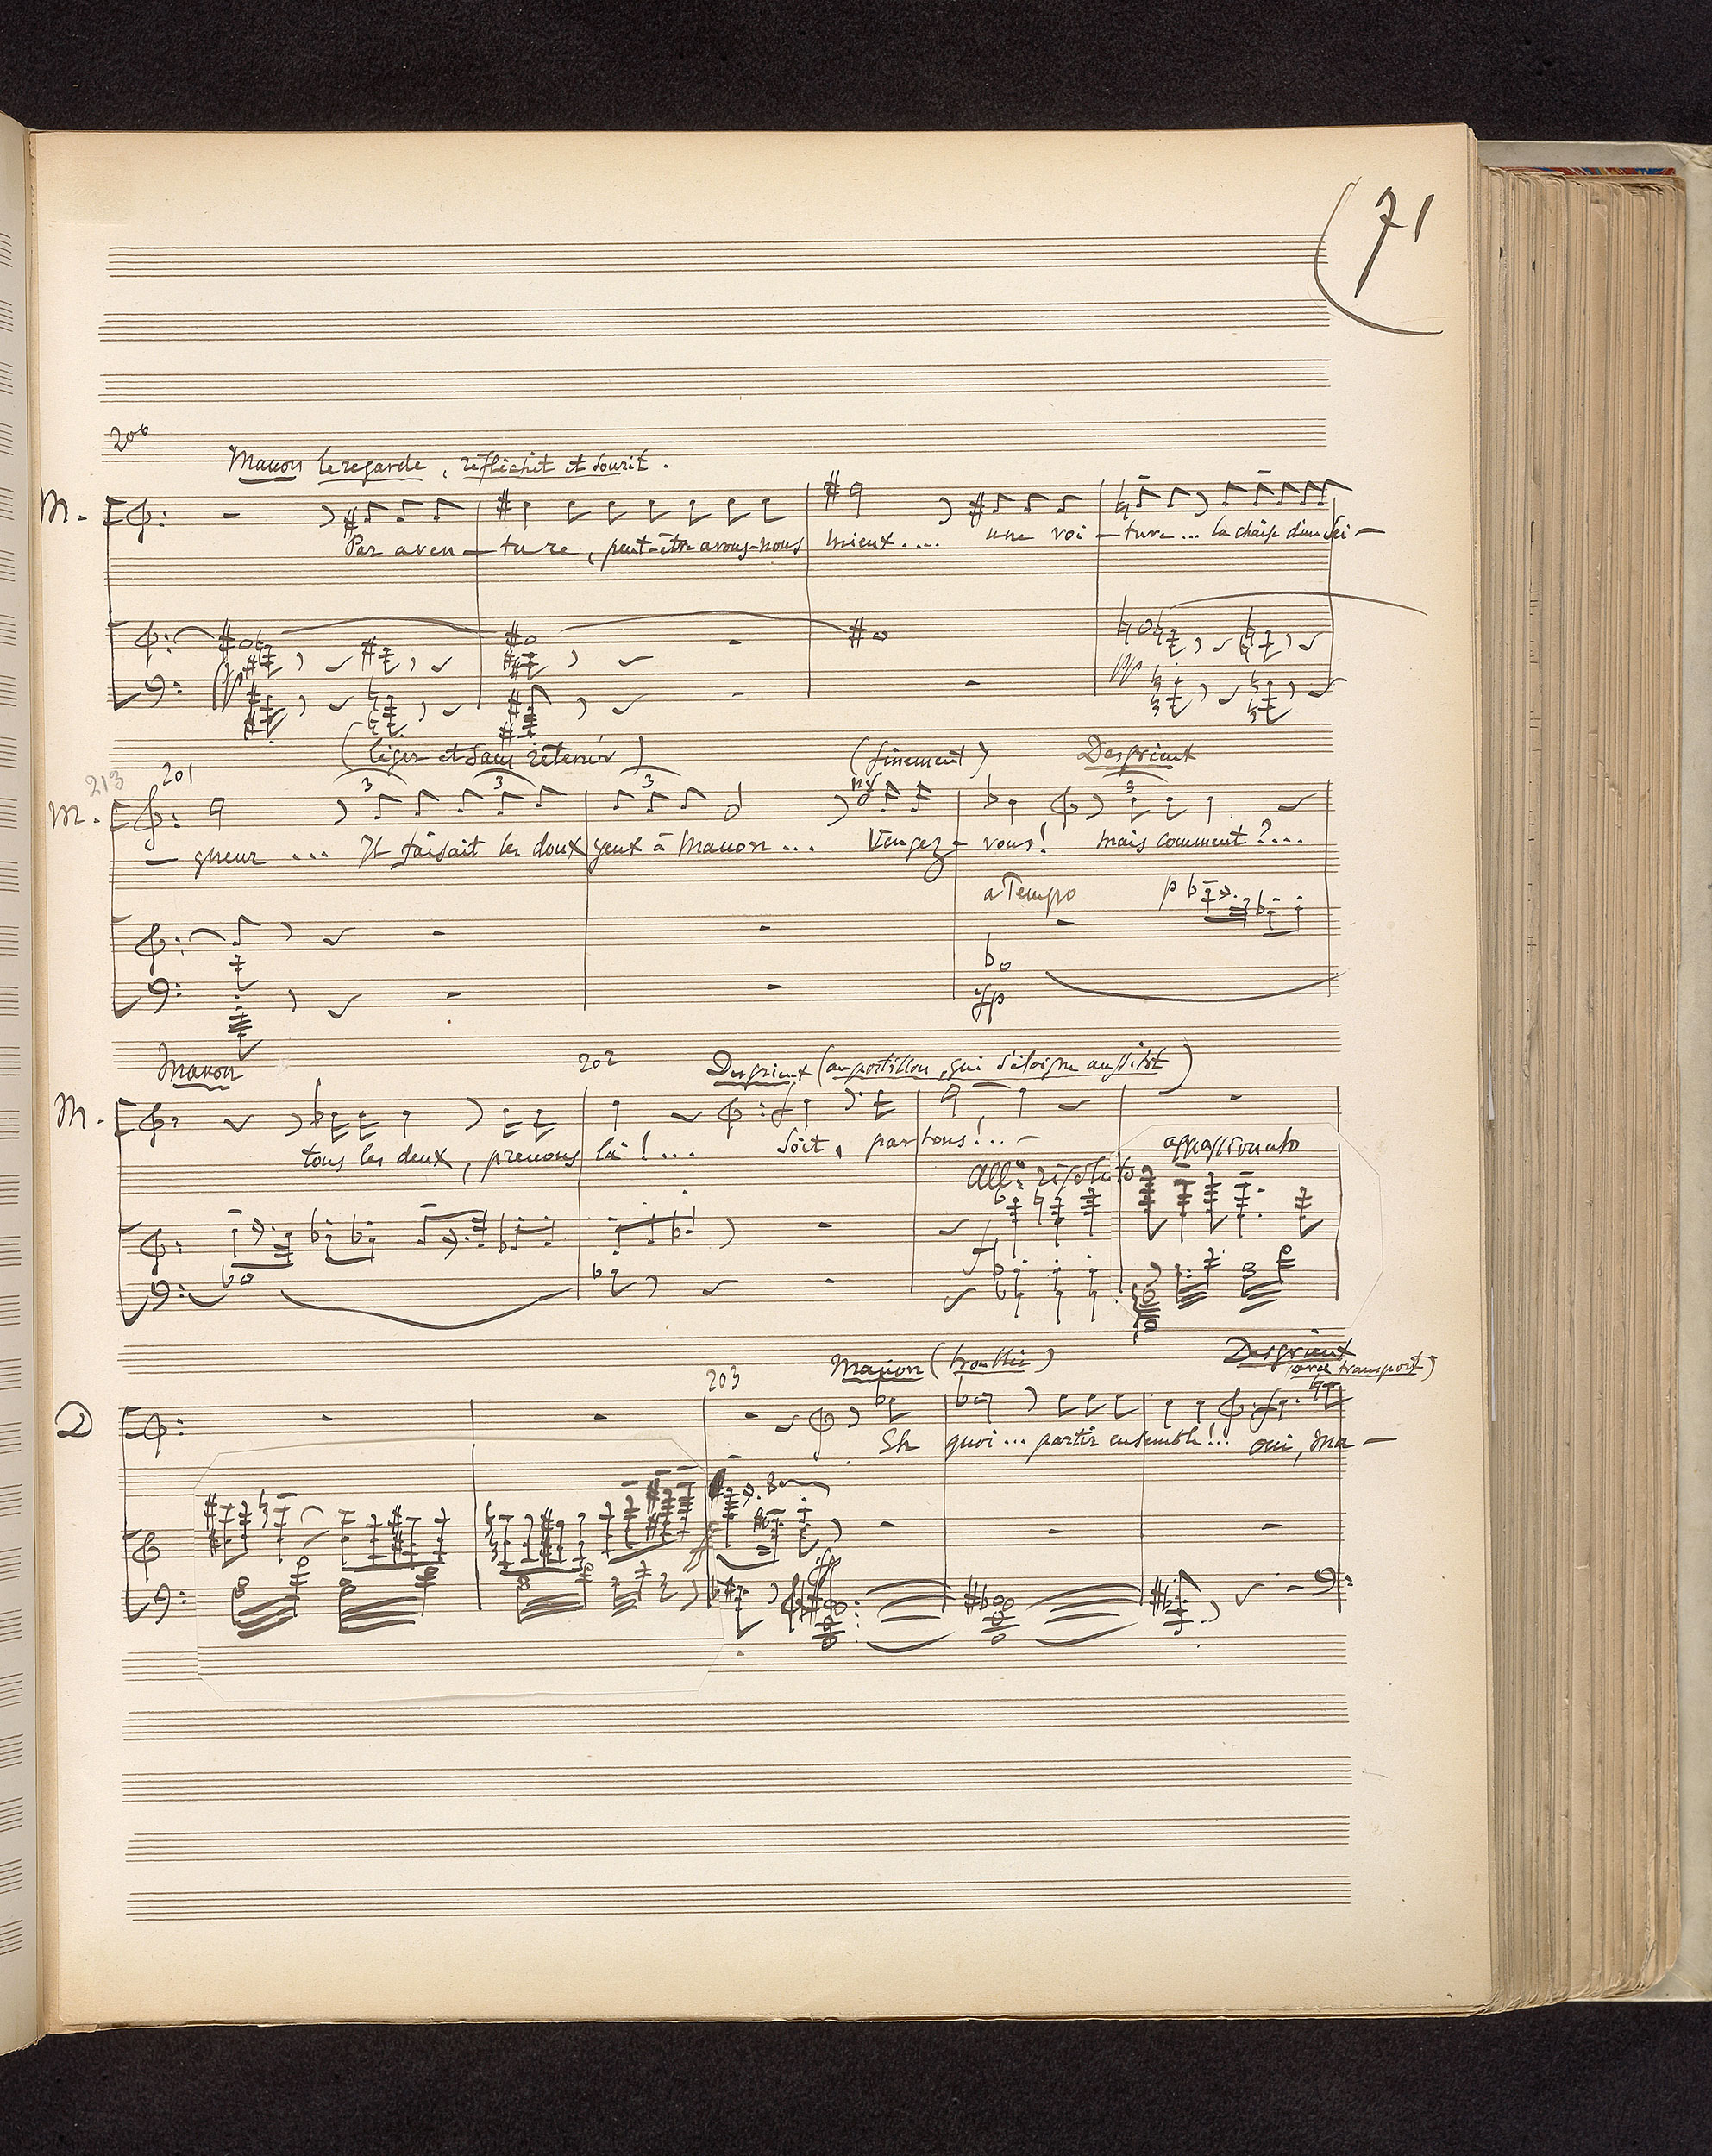 71
200
Manon le regarde, réfléchit et sourit.
M.
Par aven - ture, peut-être avons-nous mieux.... une voi - ture... la chaise d'un Sei -
pp
pp
(léger et sans retenir) (finement) Desgrieux
213 201
3 3 3 3
M.
- gneur ... Il faisait les doux yeux à Manon... Vengez - vous! mais comment?....
a Tempo p
fp
Manon 202 Desgrieux (au postillon, qui s'éloigne aussitôt)
M.
tous les deux, prenons là!... f Soit, partons!.. -
All: risoluto appassionato
f
203 Manon (troublée) Desgrieux
avec transport)
D
Eh quoi... partir ensemble!.. f oui, Ma -
8a
ff
fp